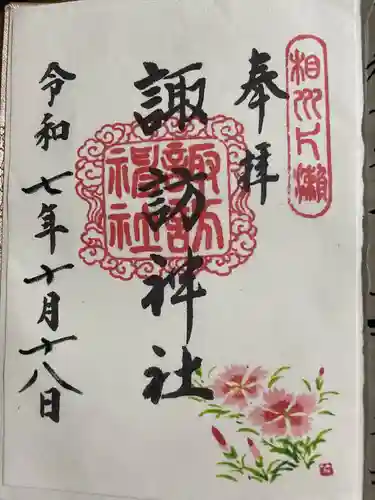 相州片瀬
奉拝
諏訪神社
諏訪神社
令和七年十月十八日